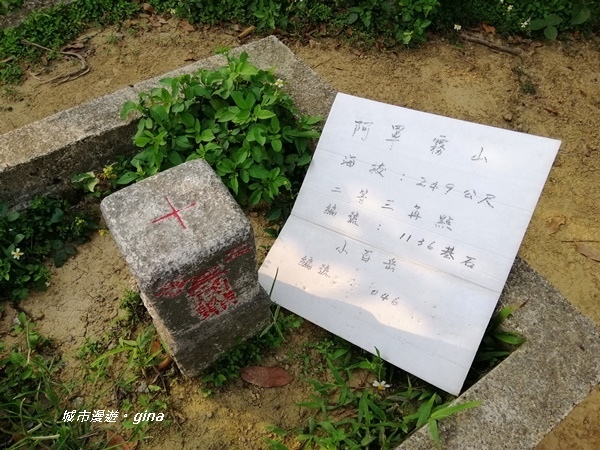 阿罩霧山
海拔：249公尺
二等三角點
編號：1136基石
小百岳
編號：046
城市漫遊・gina